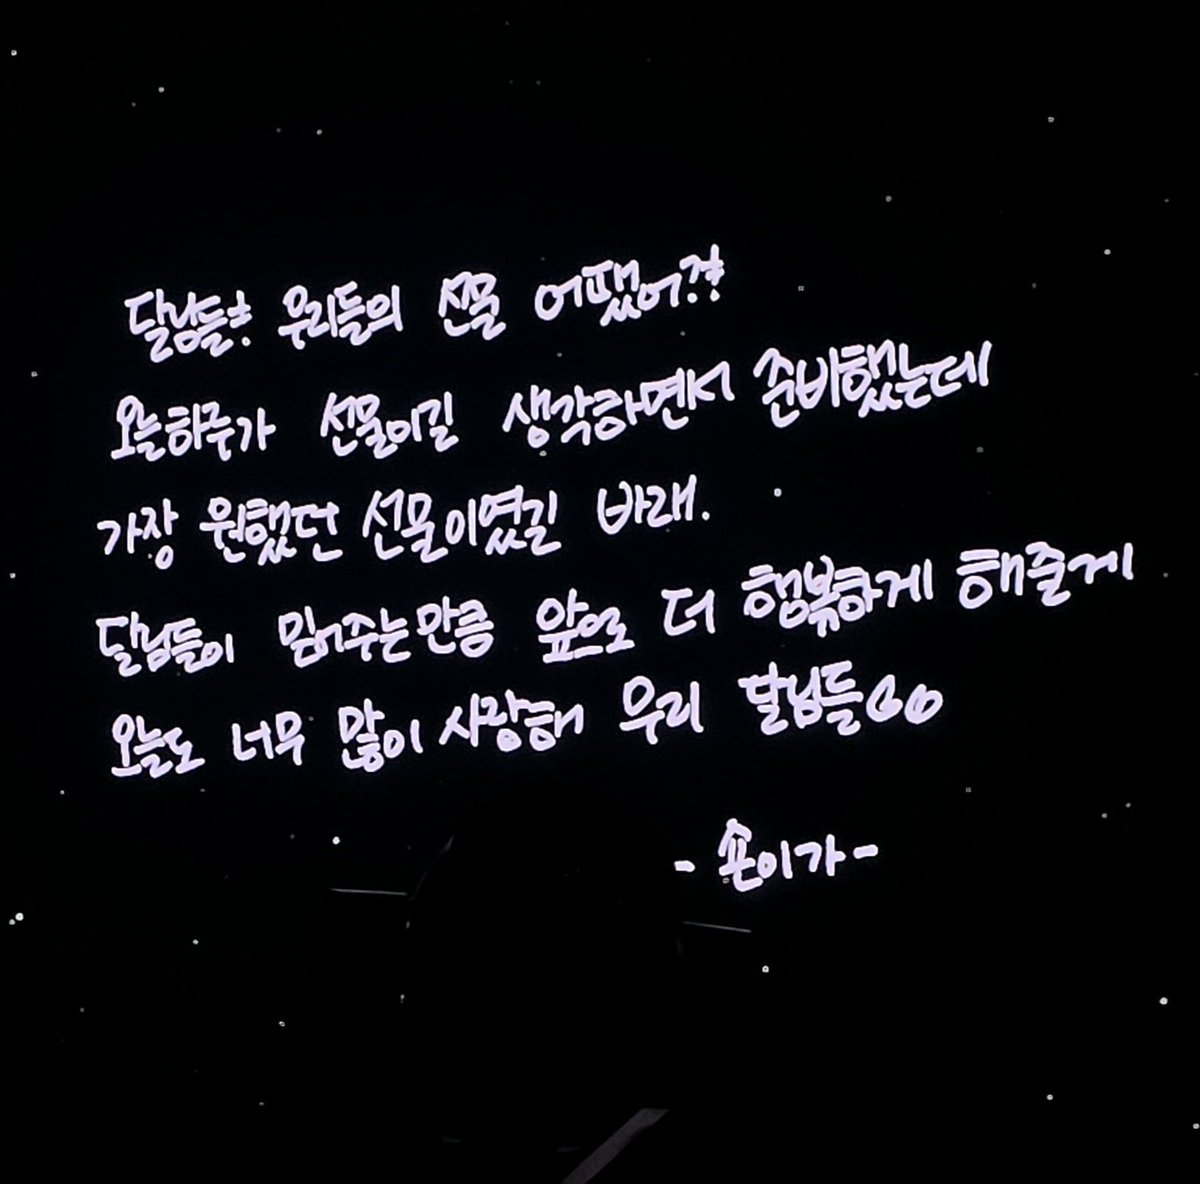 달님들! 우리들의 선물 어땠어?!
오늘하루가 선물이길 생각하면서 준비했는데
가장 원했던 선물이였길 바래.
달님들이 믿어주는만큼 앞으로 더 행복하게 해줄게
오늘도 너무 많이 사랑해 우리 달님들
- 숀이가 -